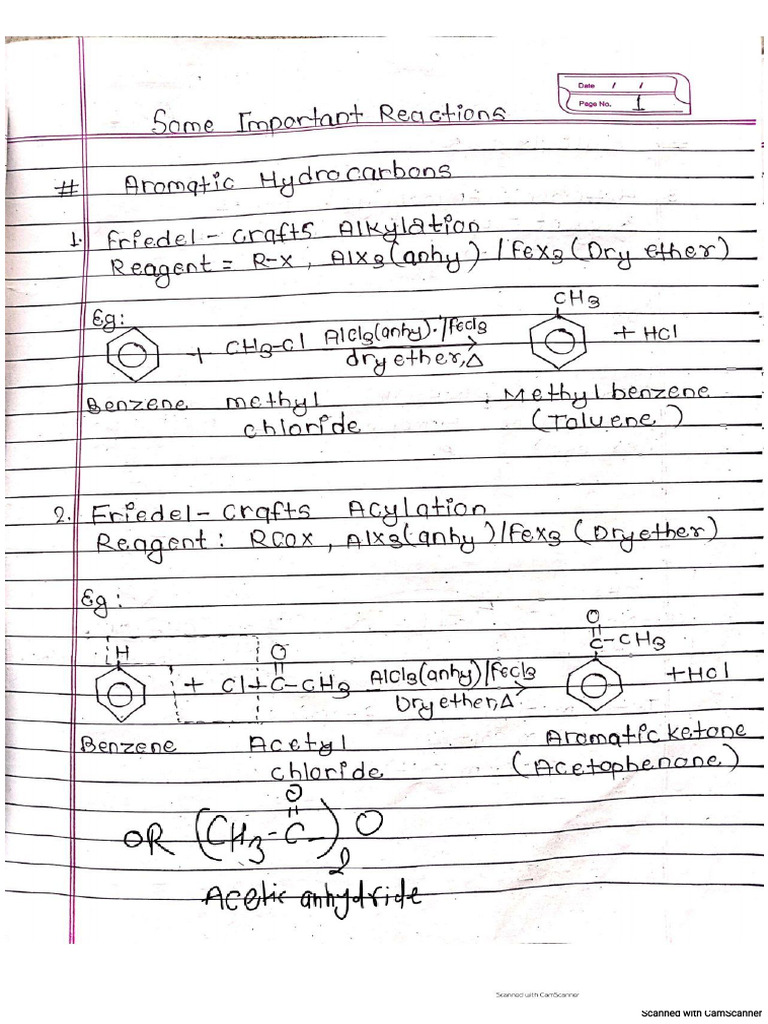 Date / /
Page No. 1
Some Important Reactions
# Aromatic Hydrocarbons
1. Friedel-Crafts Alkylation
Reagent = R-X, AlX3(anhy)./FeX3(Dry ether)
Eg:
CH3
+ CH3-Cl AlCl3(anhy)./FeCl3 + HCl
dry ether, Δ
Benzene methyl Methylbenzene
chloride (Toluene)
2. Friedel-Crafts Acylation
Reagent: RCOX, AlX3(anhy)/FeX3(Dry ether)
Eg:
O
C-CH3
H O
+ Cl+C-CH3 AlCl3(anhy)/FeCl3 +HCl
Dry ether, Δ
Benzene Acetyl Aromatic ketone
chloride (Acetophenone)
O
OR (CH3-C-)2O
Acetic anhydride
Scanned with CamScanner
Scanned with CamScanner